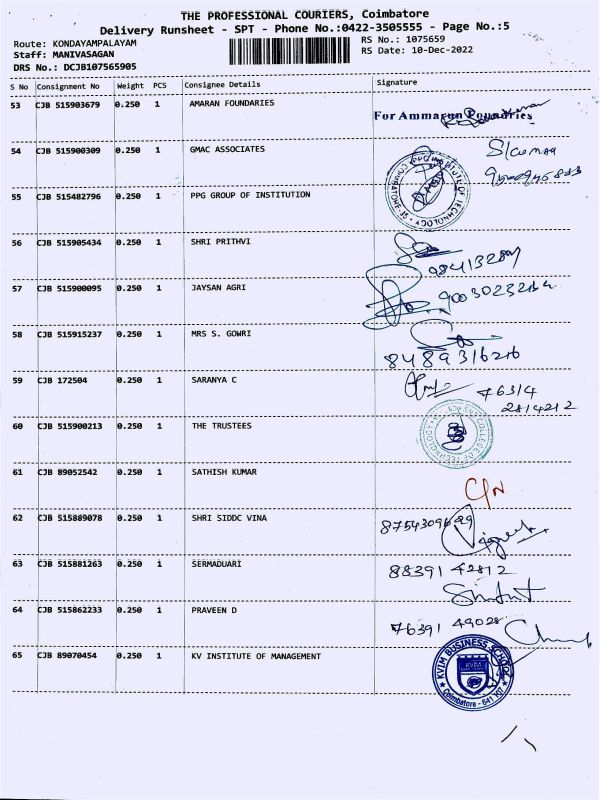 THE PROFESSIONAL COURIERS, Coimbatore
Delivery Runsheet - SPT - Phone No.:0422-3505555 - Page No.:5
Route: KONDAYAMPALAYAM
Staff: MANIVASAGAN
DRS No.: DCJB107565905
RS No.: 1075659
RS Date: 10-Dec-2022
S No Consignment No Weight PCS Consignee Details Signature
53 CJB 515903679 0.250 1 AMARAN FOUNDARIES
For Ammarun Foundries
54 CJB 515900309 0.250 1 GMAC ASSOCIATES
55 CJB 515482796 0.250 1 PPG GROUP OF INSTITUTION
56 CJB 515905434 0.250 1 SHRI PRITHVI
57 CJB 515900095 0.250 1 JAYSAN AGRI
58 CJB 515915237 0.250 1 MRS S. GOWRI
8489316216
59 CJB 172504 0.250 1 SARANYA C
76314
2814212
60 CJB 515900213 0.250 1 THE TRUSTEES
61 CJB 89052542 0.250 1 SATHISH KUMAR
62 CJB 515889078 0.250 1 SHRI SIDDC VINA
63 CJB 515881263 0.250 1 SERMADUARI
88391 42812
64 CJB 515862233 0.250 1 PRAVEEN D
76391 49028
65 CJB 89070454 0.250 1 KV INSTITUTE OF MANAGEMENT
KVIM BUSINESS SCHOOL
KVIM
Coimbatore - 641 107